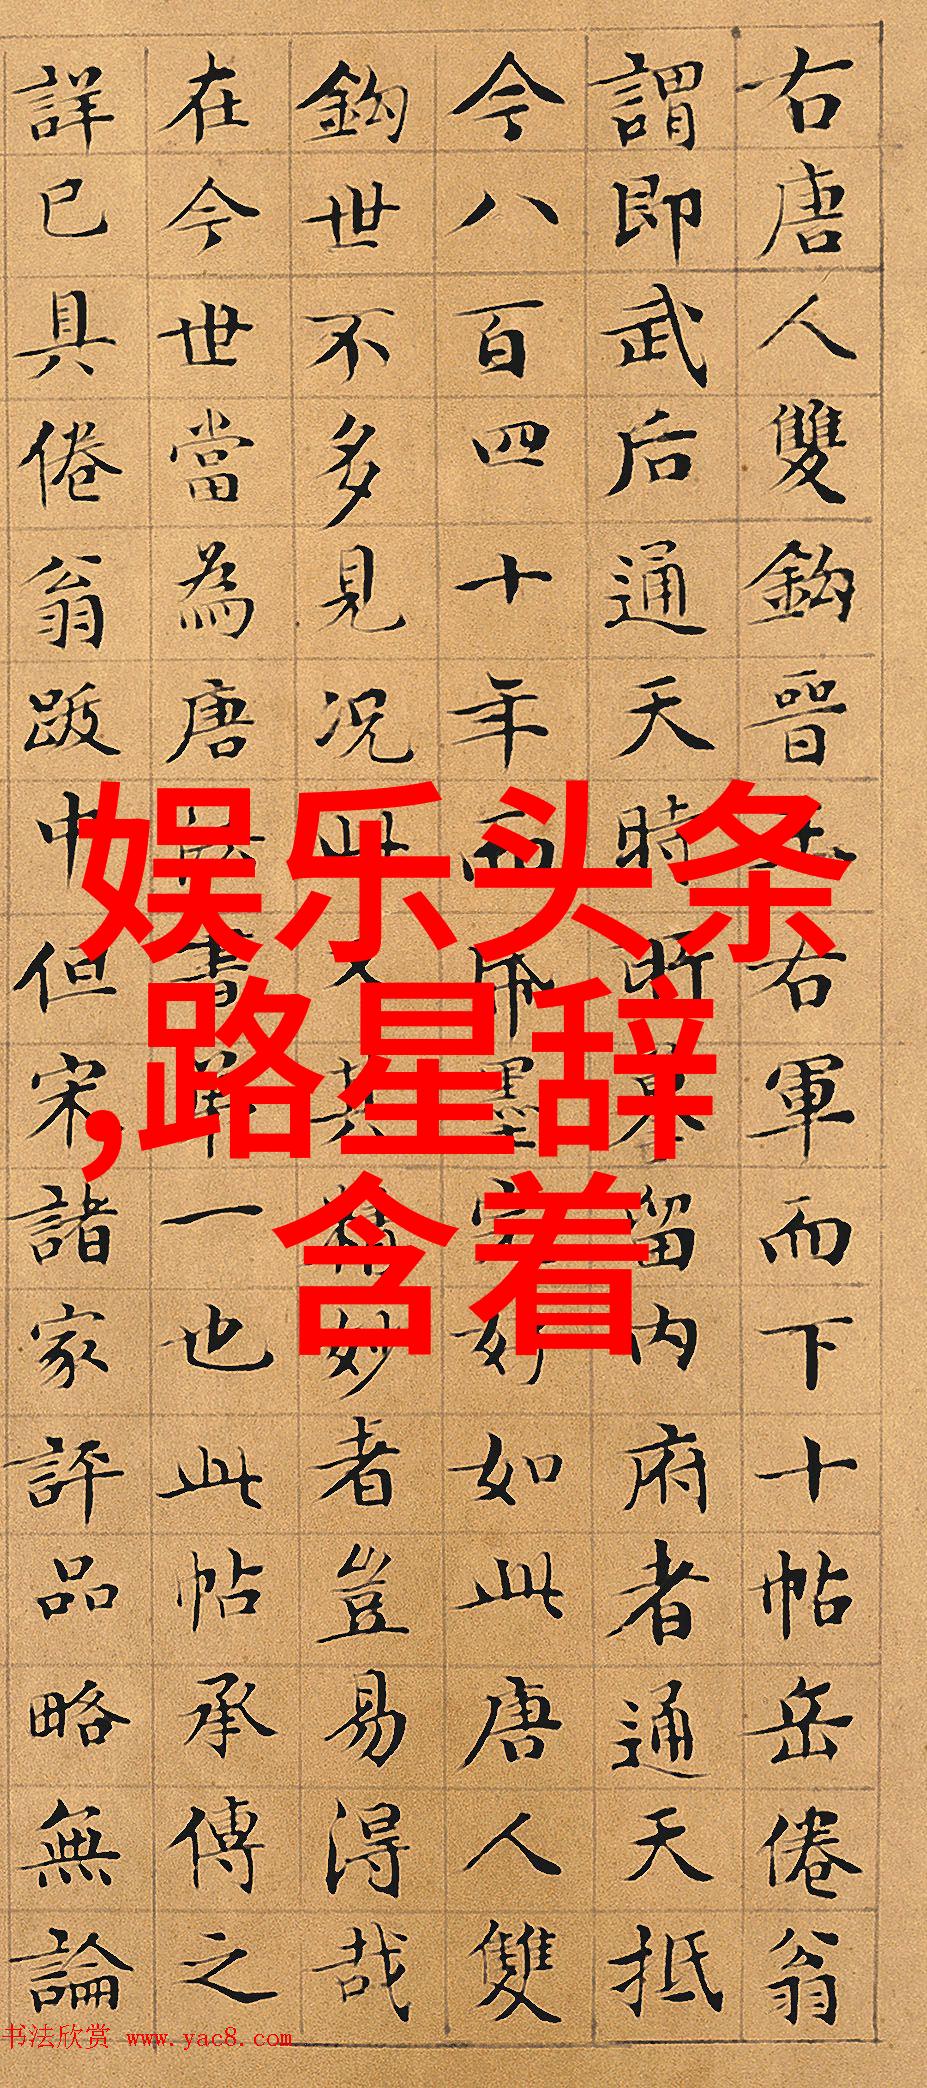 右唐人雙鈎晉王右軍而下十帖岳倦翁
謂即武后通天時所摹留内府者通天抵
今八百四十年而帋墨完好如此唐人雙
鈎世不多見況此又其精妙者豈易得哉
在今世當為唐法書第一也此帖承傳之
詳已具倦翁跋中但宋諸家評品略無論
娱乐头条
,路星辞
含着
书法欣赏 www.yac8.com